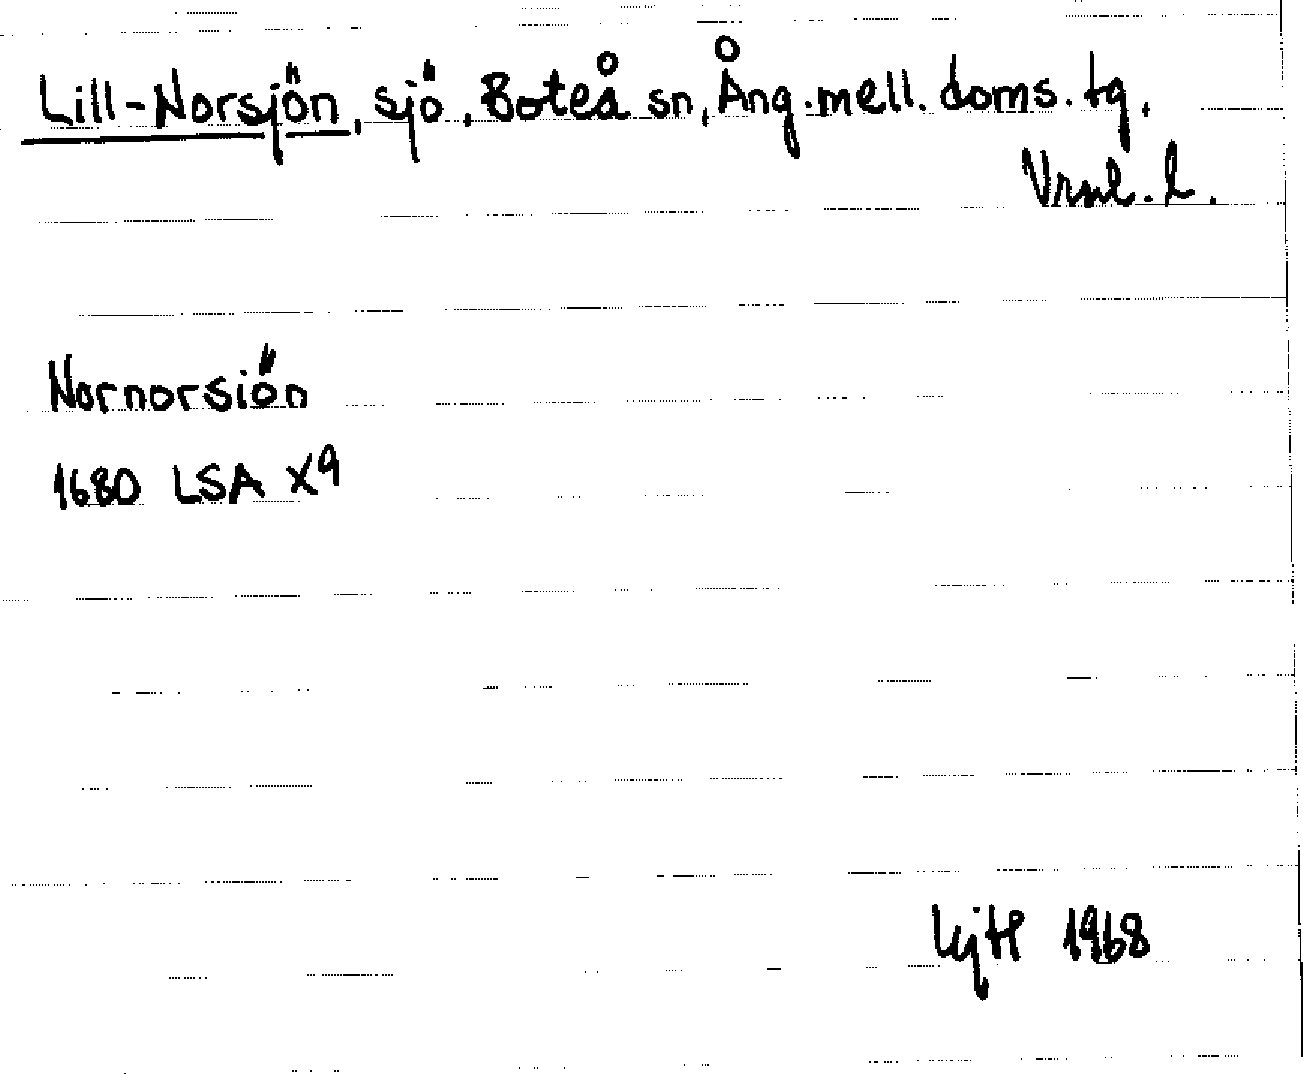 Lill-Norsjön, sjö, Boteå sn, Ång. mell. doms. tg.
Vrnl. l.
Nornorsiön
1680 LSA X9
1968